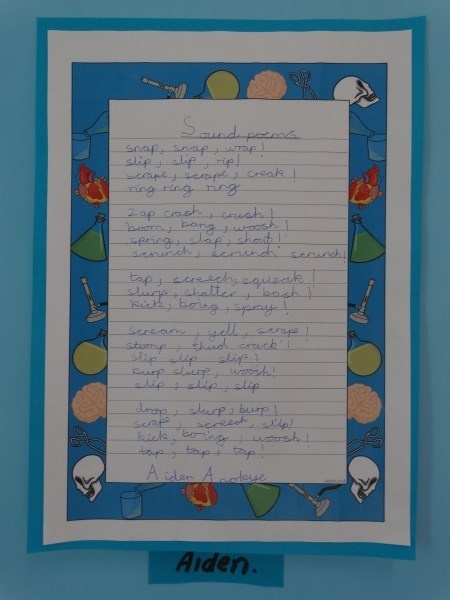 Sound poems
snap, snap, wrap!
slip, slip, rip!
scrape, scrape, creak!
ring ring ring
Zap crash, crush!
boom, bang, woosh!
spring, slap, shout!
scrunch, scrunch scrunch!
tap, screech, squeak!
slurp, shatter, bash!
kick, boing, spray!
scream, yell, scrape!
stomp, thud crack!
slip slip slip!
burp slurp, woosh!
slip, slip, slip
drop, slurp, burp!
scrape, screech, slip!
kick, boing, woosh!
tap, tap, tap!
Aiden
Aiden.